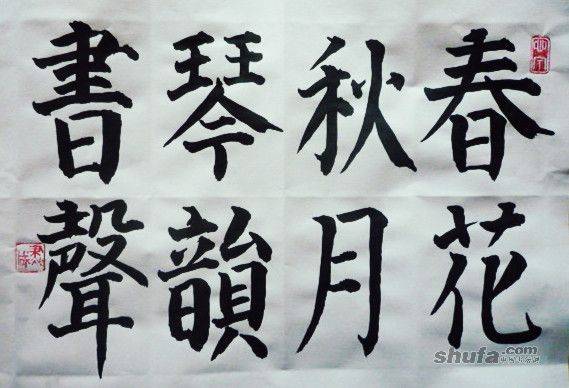 春花
秋月
琴韻
書聲
shufa.com